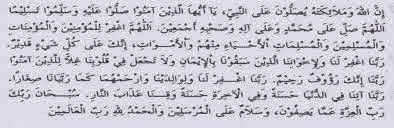 إِنَّ اللهَ وَمَلَائِكَتَهُ يُصَلُّوْنَ عَلَى النَّبِيِّ، يَا أَيُّهَا الَّذِيْنَ آمَنُوْا صَلُّوْا عَلَيْهِ وَسَلِّمُوْا تَسْلِيْمًا
اَللّٰهُمَّ صَلِّ عَلَى مُحَمَّدٍ وَعَلَى آلِهِ وَصَحْبِهِ أَجْمَعِيْنَ. اَللّٰهُمَّ اغْفِرْ لِلْمُؤْمِنِيْنَ وَالْمُؤْمِنَاتِ
وَالْمُسْلِمِيْنَ وَالْمُسْلِمَاتِ اَلْأَحْيَاءِ مِنْهُمْ وَالْأَمْوَاتِ، إِنَّكَ عَلَى كُلِّ شَيْءٍ قَدِيْرٌ.
رَبَّنَا اغْفِرْ لَنَا وَلِإِخْوَانِنَا الَّذِيْنَ سَبَقُوْنَا بِالْإِيْمَانِ وَلَا تَجْعَلْ فِيْ قُلُوْبِنَا غِلًّا لِلَّذِيْنَ آمَنُوْا
رَبَّنَا إِنَّكَ رَؤُوْفٌ رَحِيْمٌ. رَبَّنَا اغْفِرْ لَنَا وَلِوَالِدِيْنَا وَارْحَمْهُمَا كَمَا رَبَّيَانَا صِغَارًا.
رَبَّنَا آتِنَا فِي الدُّنْيَا حَسَنَةً وَفِي الْآخِرَةِ حَسَنَةً وَقِنَا عَذَابَ النَّارِ. سُبْحَانَ رَبِّكَ
رَبِّ الْعِزَّةِ عَمَّا يَصِفُوْنَ، وَسَلَامٌ عَلَى الْمُرْسَلِيْنَ وَالْحَمْدُ لِلّٰهِ رَبِّ الْعَالَمِيْنَ